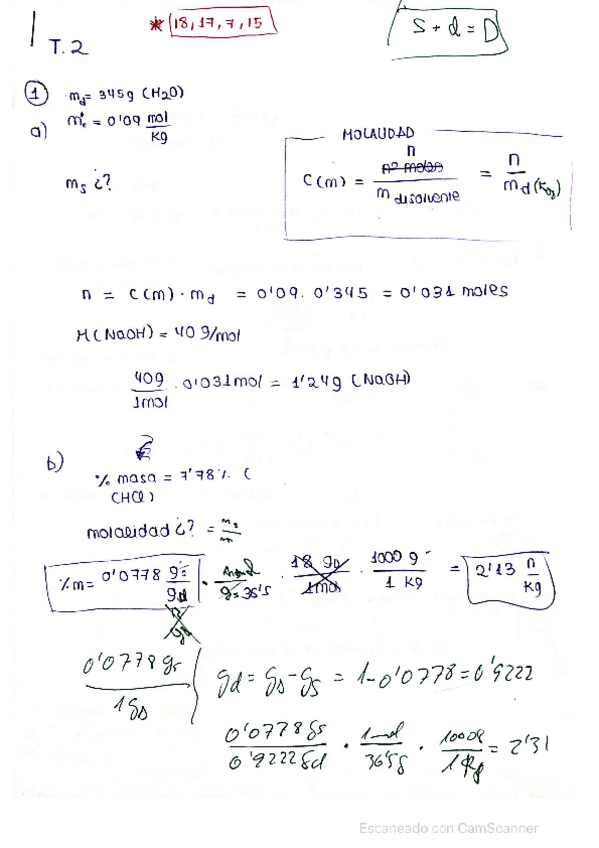 * 18, 17, 7, 15
S + d = D
T.2
1 md = 345g (H2O)
a) mc = 0'09 mol/kg
ms ¿?
MOLALIDAD
C(m) = n / m disolvente = n / md (kg)
n = C(m) · md = 0'09 · 0'345 = 0'031 moles
M(NaOH) = 40 g/mol
40g / 1mol · 0'031mol = 1'24g (NaOH)
b)
% masa = 7'78% (
(HCl)
molalidad ¿? = ms / m
%m = 0'0778 gs / gd · 1mol / gs 36'5 · 18 gD / 1mol · 1000 g / 1 kg = 2'13 n / kg
0'0778 gs / 1 gD
gd = gD - gs = 1 - 0'0778 = 0'9222
0'0778 gs / 0'9222 gd · 1mol / 36'5g · 1000g / 1Kg = 2'31
Escaneado con CamScanner